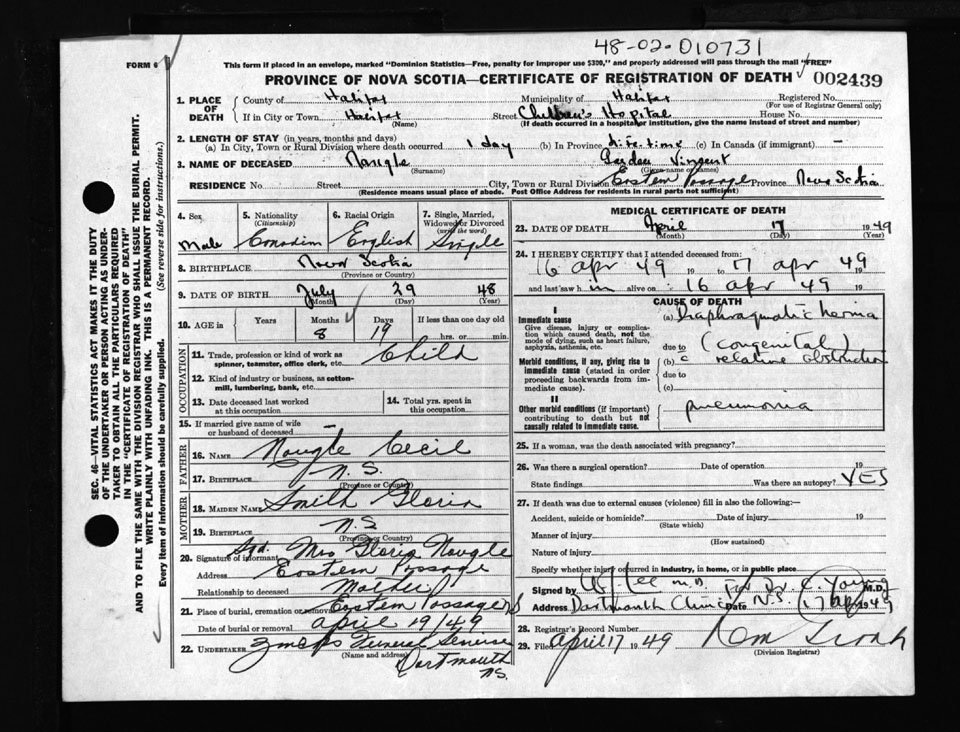 48-02-010731
FORM 6
This form if placed in an envelope, marked "Dominion Statistics—Free, penalty for improper use $300," and properly addressed will pass through the mail "FREE"
PROVINCE OF NOVA SCOTIA—CERTIFICATE OF REGISTRATION OF DEATH
002439
1. PLACE OF DEATH
County of Halifax Municipality of Halifax Registered No.
(For use of Registrar General only)
If in City or Town Halifax Street Children's Hospital House No.
(Name) (If death occurred in a hospital or institution, give the name instead of street and number)
2. LENGTH OF STAY (in years, months and days)
(a) In City, Town or Rural Division where death occurred 1 day (b) In Province life time (c) In Canada (if immigrant) —
3. NAME OF DECEASED Naugle Vincent
(Surname) (Given name or names)
RESIDENCE No. Street City, Town or Rural Division Eastern Passage Province Nova Scotia
(Residence means usual place of abode. Post Office Address for residents in rural parts not sufficient)
4. Sex Male
5. Nationality (Citizenship) Canadian
6. Racial Origin English
7. Single, Married, Widowed or Divorced (write the word) Single
8. BIRTHPLACE Nova Scotia
(Province or Country)
9. DATE OF BIRTH July 29 48
(Month) (Day) (Year)
10. AGE in Years Months Days If less than one day old
8 19 hrs. or min.
OCCUPATION
11. Trade, profession or kind of work as spinner, teamster, office clerk, etc. Child
12. Kind of industry or business, as cotton-mill, lumbering, bank, etc.
13. Date deceased last worked at this occupation
14. Total yrs. spent in this occupation
15. If married give name of wife or husband of deceased —
FATHER
16. NAME Naugle Cecil
17. BIRTHPLACE N.S.
(Province or Country)
MOTHER
18. MAIDEN NAME Smith Gloria
19. BIRTHPLACE N.S
(Province or Country)
20. Signature of informant Sgd. Mrs Gloria Naugle
Address Eastern Passage
Relationship to deceased Mother
21. Place of burial, cremation or removal Eastern Passage NS
Date of burial or removal April 19/49
22. UNDERTAKER Funeral Service
(Name and address) Dartmouth
N.S.
MEDICAL CERTIFICATE OF DEATH
23. DATE OF DEATH April 17 1949
(Month) (Day) (Year)
24. I HEREBY CERTIFY that I attended deceased from:
16 Apr 49 19 to 17 Apr 49 19
and last saw him alive on 16 Apr 49 19
CAUSE OF DEATH
I
Immediate cause
Give disease, injury or complication which caused death, not the mode of dying, such as heart failure, asphyxia, asthenia, etc.
(a) Diaphragmatic hernia
due to (congenital)
Morbid conditions, if any, giving rise to immediate cause (stated in order proceeding backwards from immediate cause).
(b) c relative obstruction
due to
(c)
II
Other morbid conditions (if important) contributing to death but not causally related to immediate cause.
pneumonia
25. If a woman, was the death associated with pregnancy?
26. Was there a surgical operation? Date of operation 19
State findings Was there an autopsy? YES
27. If death was due to external causes (violence) fill in also the following:—
Accident, suicide or homicide? Date of injury 19
(State which)
Manner of injury
(How sustained)
Nature of injury
Specify whether injury occurred in industry, in home, or in public place
Signed by Lee M.D. for Dr. C. Young M.D.
Address Dartmouth Clinic N.S. Date 17 Apr 1949
28. Registrar's Record Number
29. Filed April 17 1949
(Division Registrar)
SEC. 46—VITAL STATISTICS ACT MAKES IT THE DUTY
OF THE UNDERTAKER OR PERSON ACTING AS UNDERTAKER TO OBTAIN ALL THE PARTICULARS REQUIRED
IN THE "CERTIFICATE OF REGISTRATION OF DEATH"
AND TO FILE THE SAME WITH THE DIVISION REGISTRAR WHO SHALL ISSUE THE BURIAL PERMIT.
WRITE PLAINLY WITH UNFADING INK. THIS IS A PERMANENT RECORD.
Every item of information should be carefully supplied. (See reverse side for instructions.)